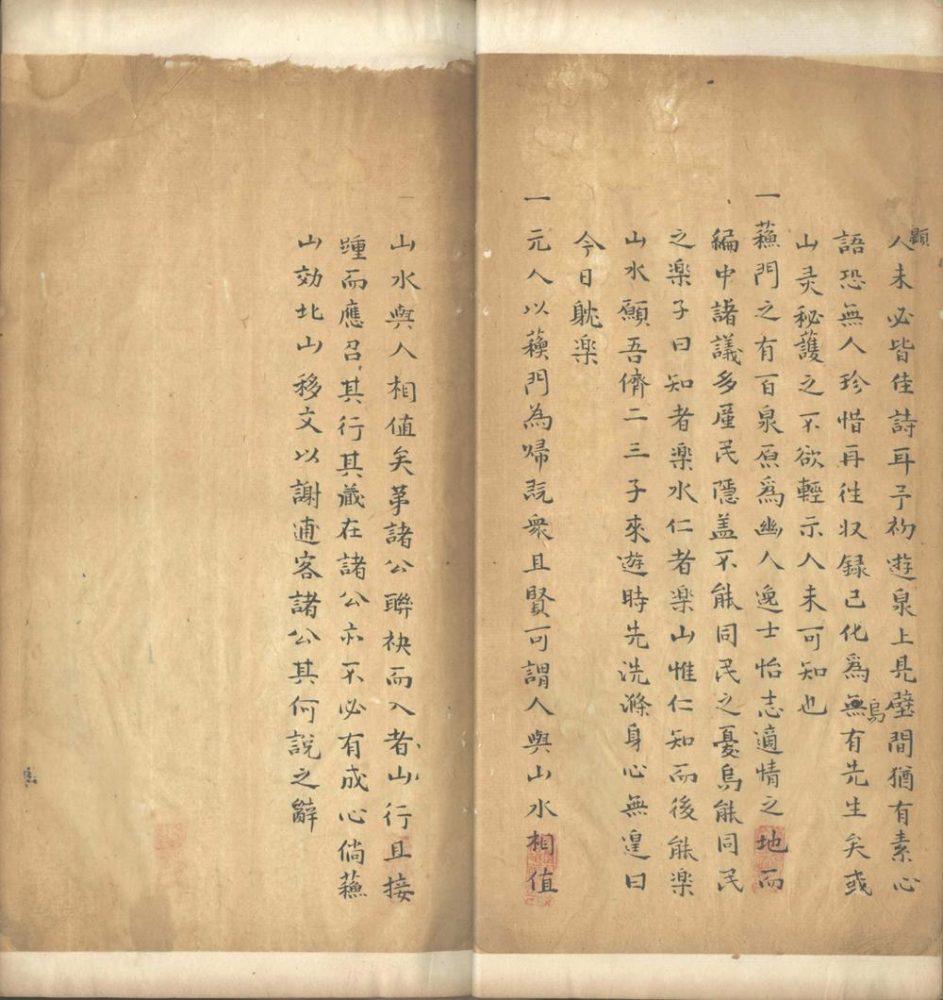 顯人未必皆佳詩耳予初遊泉上見壁間猶有素心
語恐無人珍惜再往収録已化爲烏有先生矣或
山灵秘護之不欲輕示人未可知也
一蘓門之有百泉原爲幽人逸士怡志適情之地而
編中諸議多厪民隱盖不能同民之憂烏能同民
之楽子曰知者楽水仁者楽山惟仁知而後能楽
山水願吾儕二三子來遊時先洗滌身心無遑曰
今日躭楽
一元人以蘓門為歸既衆且賢可謂人與山水相值
山水與人相值矣苐諸公聯袂而入者山行且接
踵而應召其行其藏在諸公亦不必有成心倘蘓
山效北山移文以謝逋客諸公其何說之辭